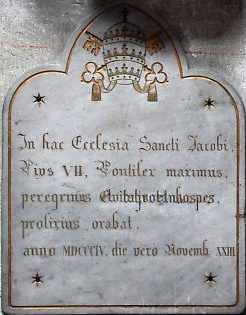 In hac Ecclesia Sancti Jacobi,
Pius VII, Pontifex maximus,
peregrinus
prolixius orabat,
anno MDCCCIV, die vero Novemb. XXIII.